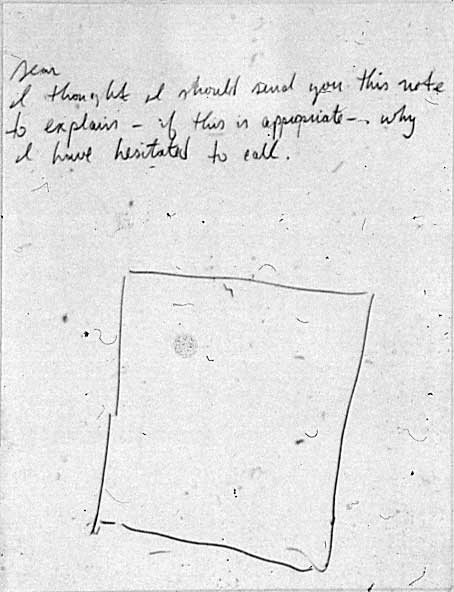 Dear
I thought I should send you this note
to explain - if this is appropriate - why
I have hesitated to call.